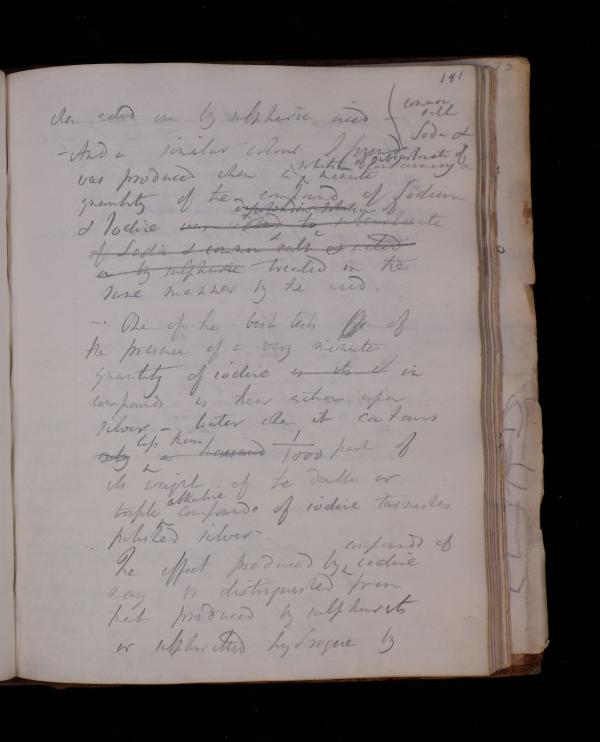 141
when acted on by sulphuric acid -
common
salt
Soda &
- And a similar colour I found
was produced when a solution of subcarbonate of
containing a minute
quantity of the compound of Sodium
& Iodine was added to a subcarbonate
of Soda & common salt & acted
on by sulphuric treated in the
same manner by the acid.
- One of the best tests of
the presence of a very minute
quantity of iodine is its in
compounds is their action upon
silver - water when it contains
only less than a thousand 1/1000 part of
its weight of the double or
triple alkaline compounds of iodine tarnishes
polished silver -
The effect produced by compounds of iodine
may be distinguished from
that produced by sulphurets
or sulphuretted hydrogene by